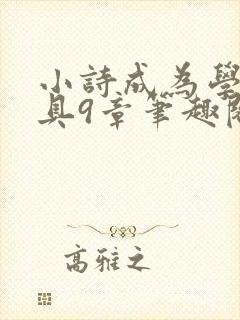 小詩成為學
具9章筆趣閣
高雅之